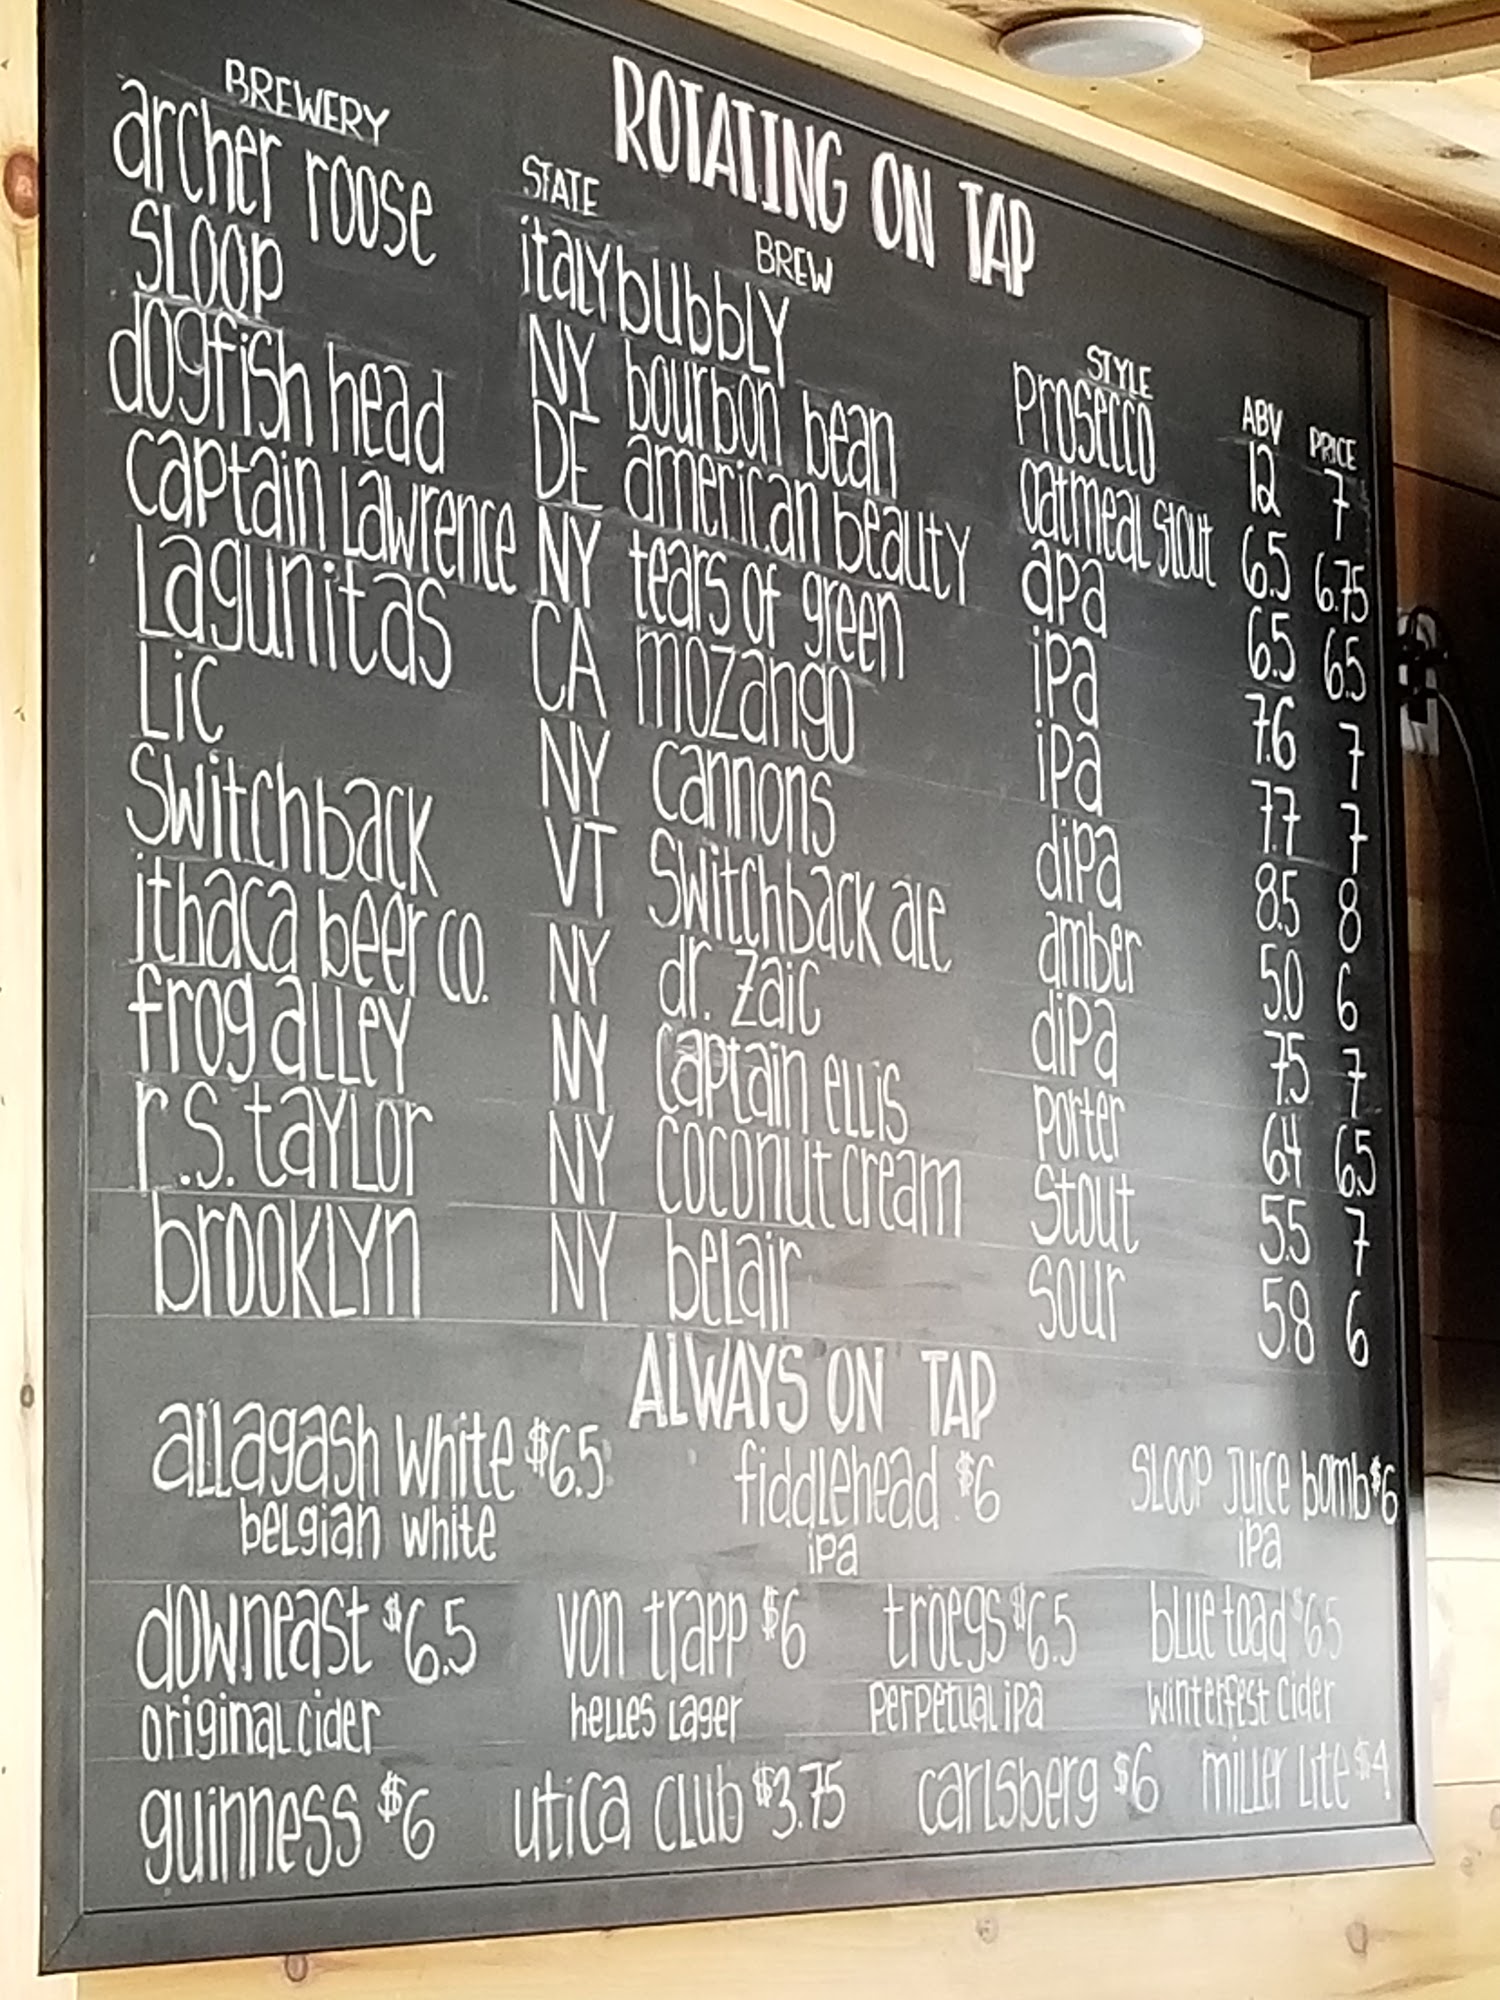 ROTATING ON TAP
BREWERY STATE BREW STYLE ABV PRICE
archer roose italy bubbly prosecco 12 7
sloop NY bourbon bean oatmeal stout 6.5 6.75
dogfish head DE american beauty apa 6.5 6.5
captain lawrence NY tears of green ipa 7.6 7
Lagunitas CA mozango ipa 7.7 7
Lic NY cannons dipa 8.5 8
Switchback VT Switchback ale amber 5.0 6
ithaca beer co. NY dr. zaic dipa 7.5 7
frog alley NY captain ellis porter 6.4 6.5
r.s. taylor NY coconut cream stout 5.5 7
brooklyn NY belair sour 5.8 6
ALWAYS ON TAP
allagash white $6.5 fiddlehead $6 sloop juice bomb $6
belgian white ipa ipa
downeast $6.5 von trapp $6 troegs $6.5 blue toad $6.5
original cider helles lager perpetual ipa winterfest cider
guinness $6 utica club $3.75 carlsberg $6 miller lite $4